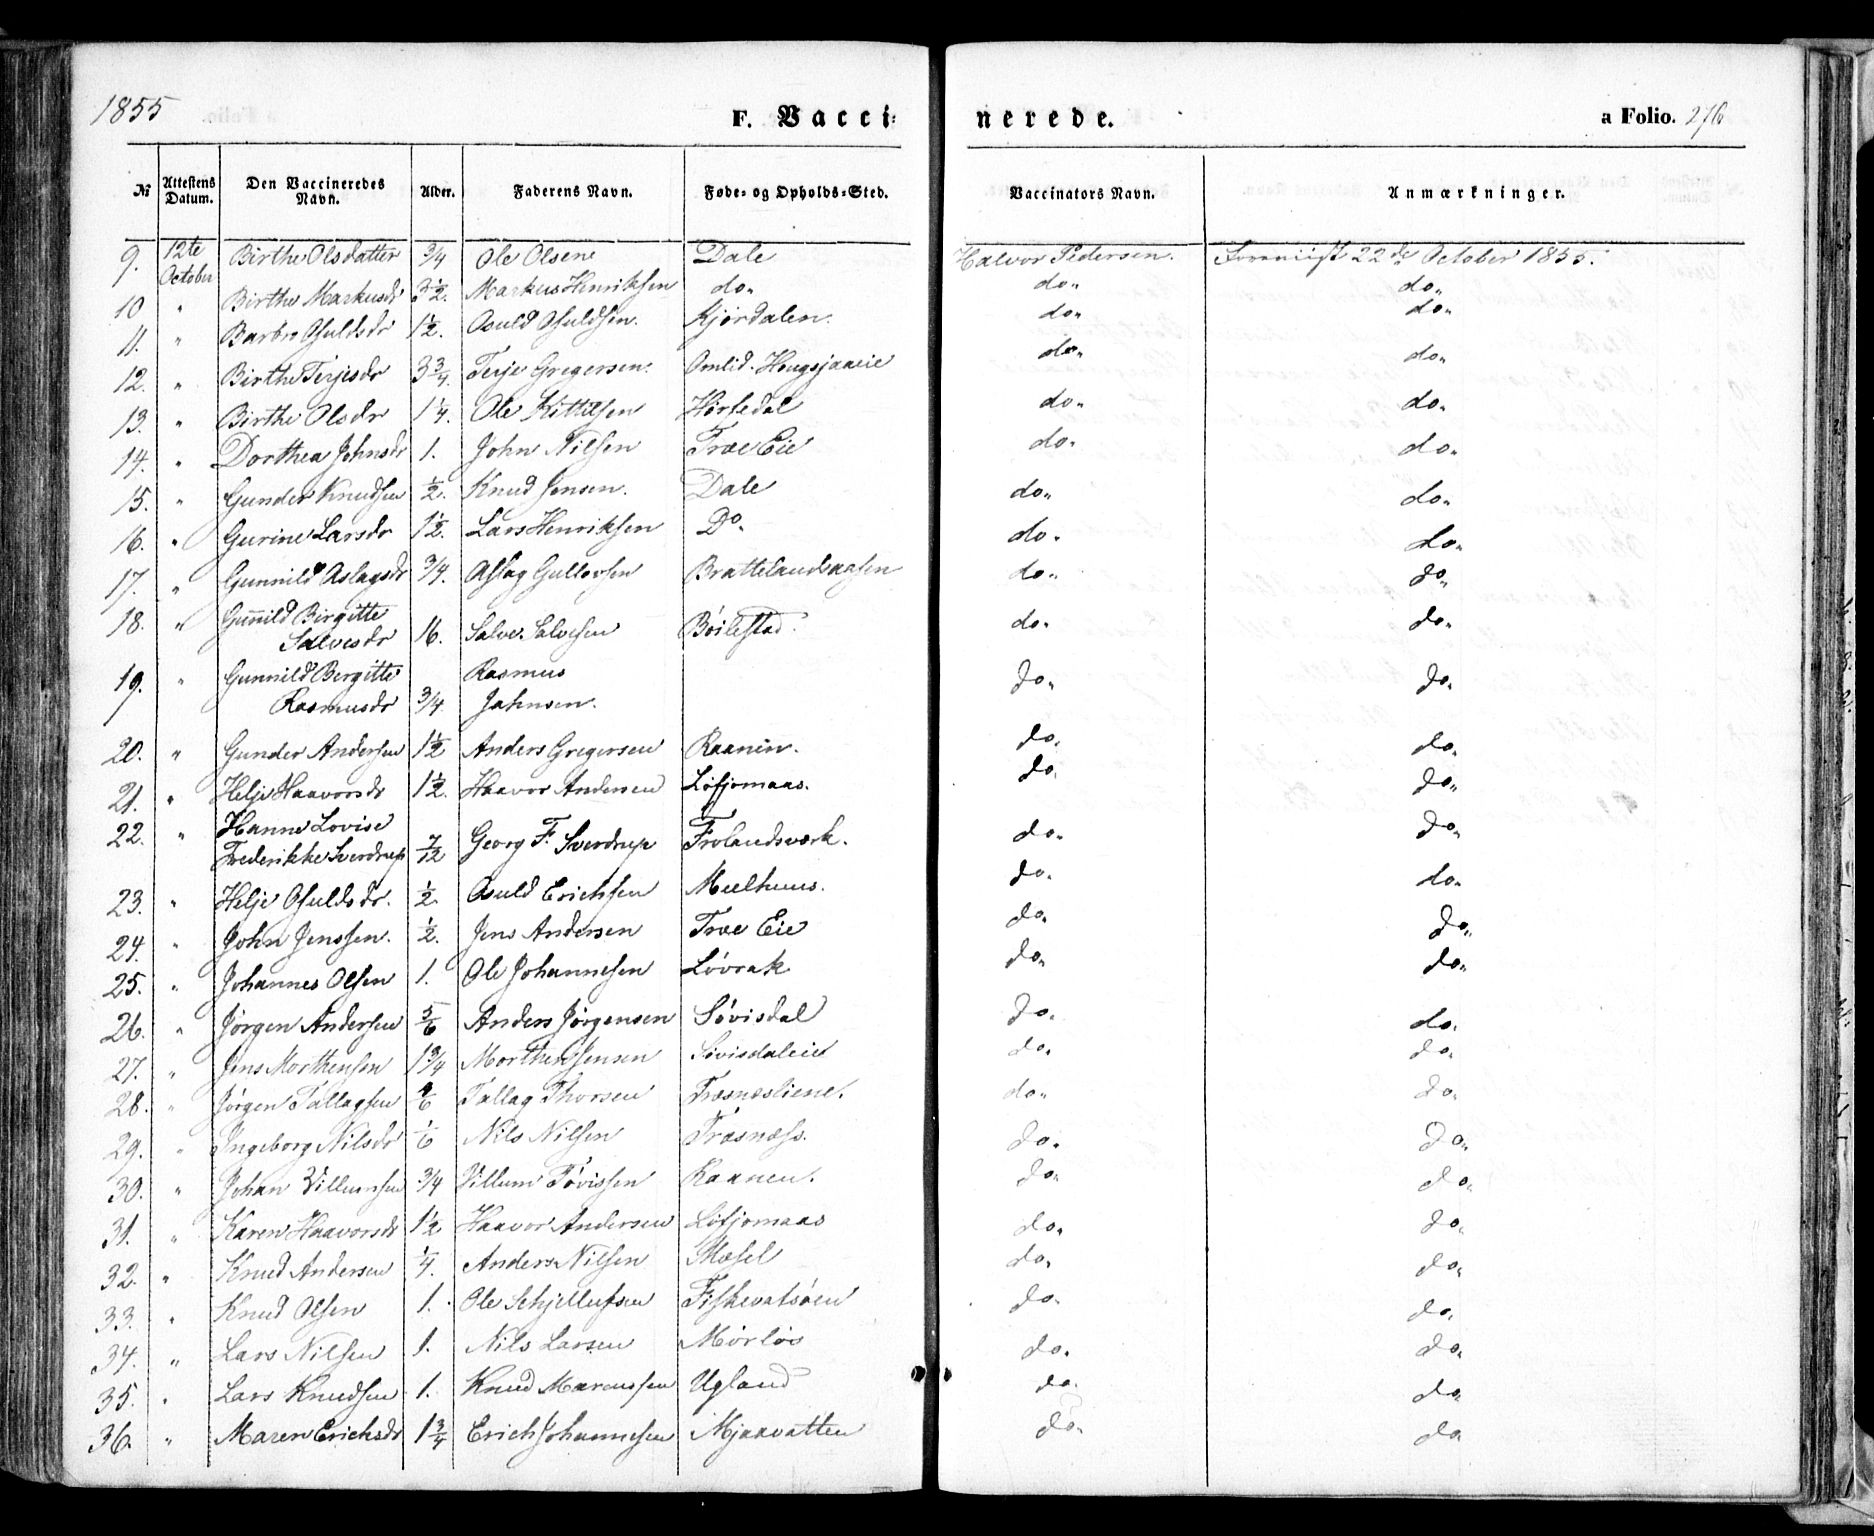 1855
F. Vacci=
nerede.
a Folio. 276
№ Attestens Datum. Den Vaccineredes Navn. Alder. Faderens Navn. Føde- og Opholds-Sted. Vaccinators Navn. Anmærkninger.
9. 12te October Birthe Olsdatter 3/4 Ole Olsen Dale Halvor Pedersen. 22de October 1855.
10 " Birthe Markusdr 3 1/2. Markus Henriksen do" do" do"
11. " Barbro Osuldsdr 1 1/2. Osuld Osuldsen. Kjørdalen. do" do"
12. " Birthe Terjesdr 3 3/4. Terje Gregersen. Omlid. do" do"
13. " Birthe Olsdr 1 1/4. Ole Kittilsen Hørtedal do" do"
14. " Dorthea Johnsdr 1. John Nilsen Træ Eie do" do"
15. " Gunder Knudsen 1/2. Knud Jensen. Dale do" do"
16. " Gurine Larsdr 1 1/2. Lars Henriksen Do" do" do"
17. " Gunnild Aslagsdr 3/4. Aslag Gullovsen Brattelandsaasen do" do"
18. " Gunild Birgitte
Salvesdr 16. Salve Salvesen Bøilestad. do" do"
19. " Gunnild Bergitte Rasmus do" do"
Rasmusdr 3/4 Jahnsen.
20. " Gunder Andersen 1 1/2 Anders Gregersen Raanin. do. do"
21. " Helje Haavorsdr 1 1/2. Haavor Andersen Løfjomaas. do do"
22. " Hanne Lovise
Frederikke Sverdrup 7/12 Georg F. Sverdrup Frolandsværk. do" do"
23. " Helje Osuldsdr. 1/2. Osuld Erichsen Mælhuus. do" do"
24. " John Jenssen. 1/2. Jens Andersen Træ Eie do" do"
25. " Johannes Olsen 1. Ole Johannesen Løvrak do" do"
26. " Jørgen Andersen 5/6 Anders Jørgensen Søvisdal do" do"
27. " Jens Morthensen 1 3/4 Morthen Jensen Søvisdaleie do" do"
28. " Jørgen Tallagsen /6 Tallag Thorsen Træsnæsliene. do" do"
29. " Ingeborg Nilsdr 1/6 Nils Nilsen Træsnæss. do" do"
30. " Johan Villumsen 3/4 Villum Tøvissen Raanen. do" do"
31. " Karen Haavorsdr 1 1/2 Haavor Andersen Løfjomaas do" do"
32. " Knud Andersen 1/4. Anders Nilsen Mæsel do" do"
33. " Knud Olsen 1. Ole Schjellufsen Fiskevatsøen do" do"
34. " Lars Nilsen 1. Nils Larsen Mørløs do" do"
35. " Lars Knudsen 1. Knud Marcussen Ugland do" do"
36. " Maren Erichsdr 1 3/4 Erich Johannesen Mjaavatten do" do"